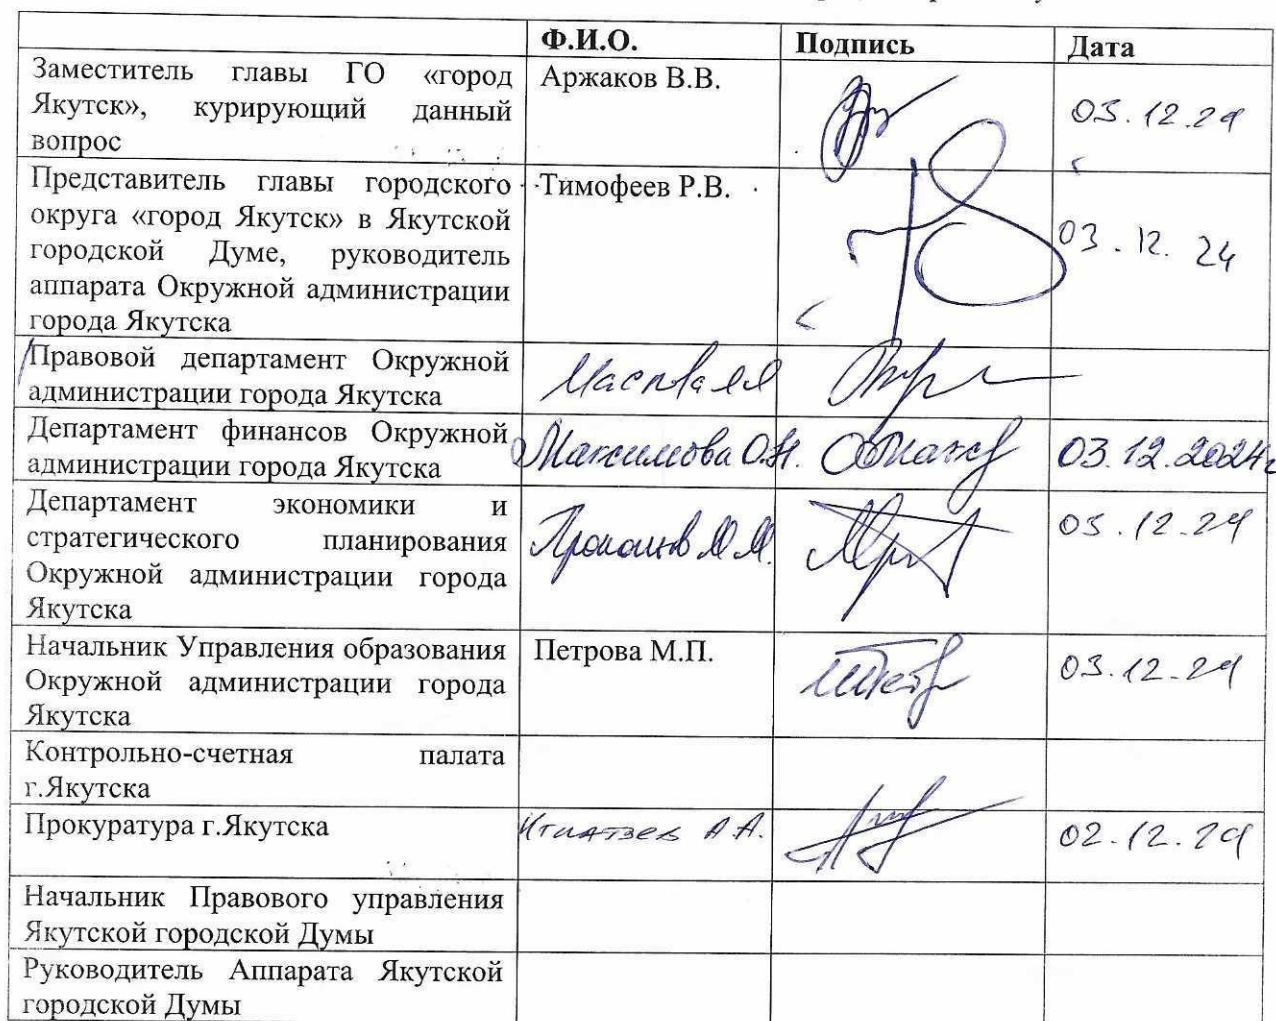 Ф.И.О. Подпись Дата
Заместитель главы ГО «город
Якутск», курирующий данный
вопрос
Аржаков В.В.
03.12.24
Представитель главы городского
округа «город Якутск» в Якутской
городской Думе, руководитель
аппарата Окружной администрации
города Якутска
Тимофеев Р.В.
03.12.24
Правовой департамент Окружной
администрации города Якутска
Департамент финансов Окружной
администрации города Якутска
Максимова О.Н.
03.12.2024г
Департамент экономики и
стратегического планирования
Окружной администрации города
Якутска
03.12.24
Начальник Управления образования
Окружной администрации города
Якутска
Петрова М.П.
03.12.24
Контрольно-счетная палата
г.Якутска
Прокуратура г.Якутска
А.А.
02.12.24
Начальник Правового управления
Якутской городской Думы
Руководитель Аппарата Якутской
городской Думы